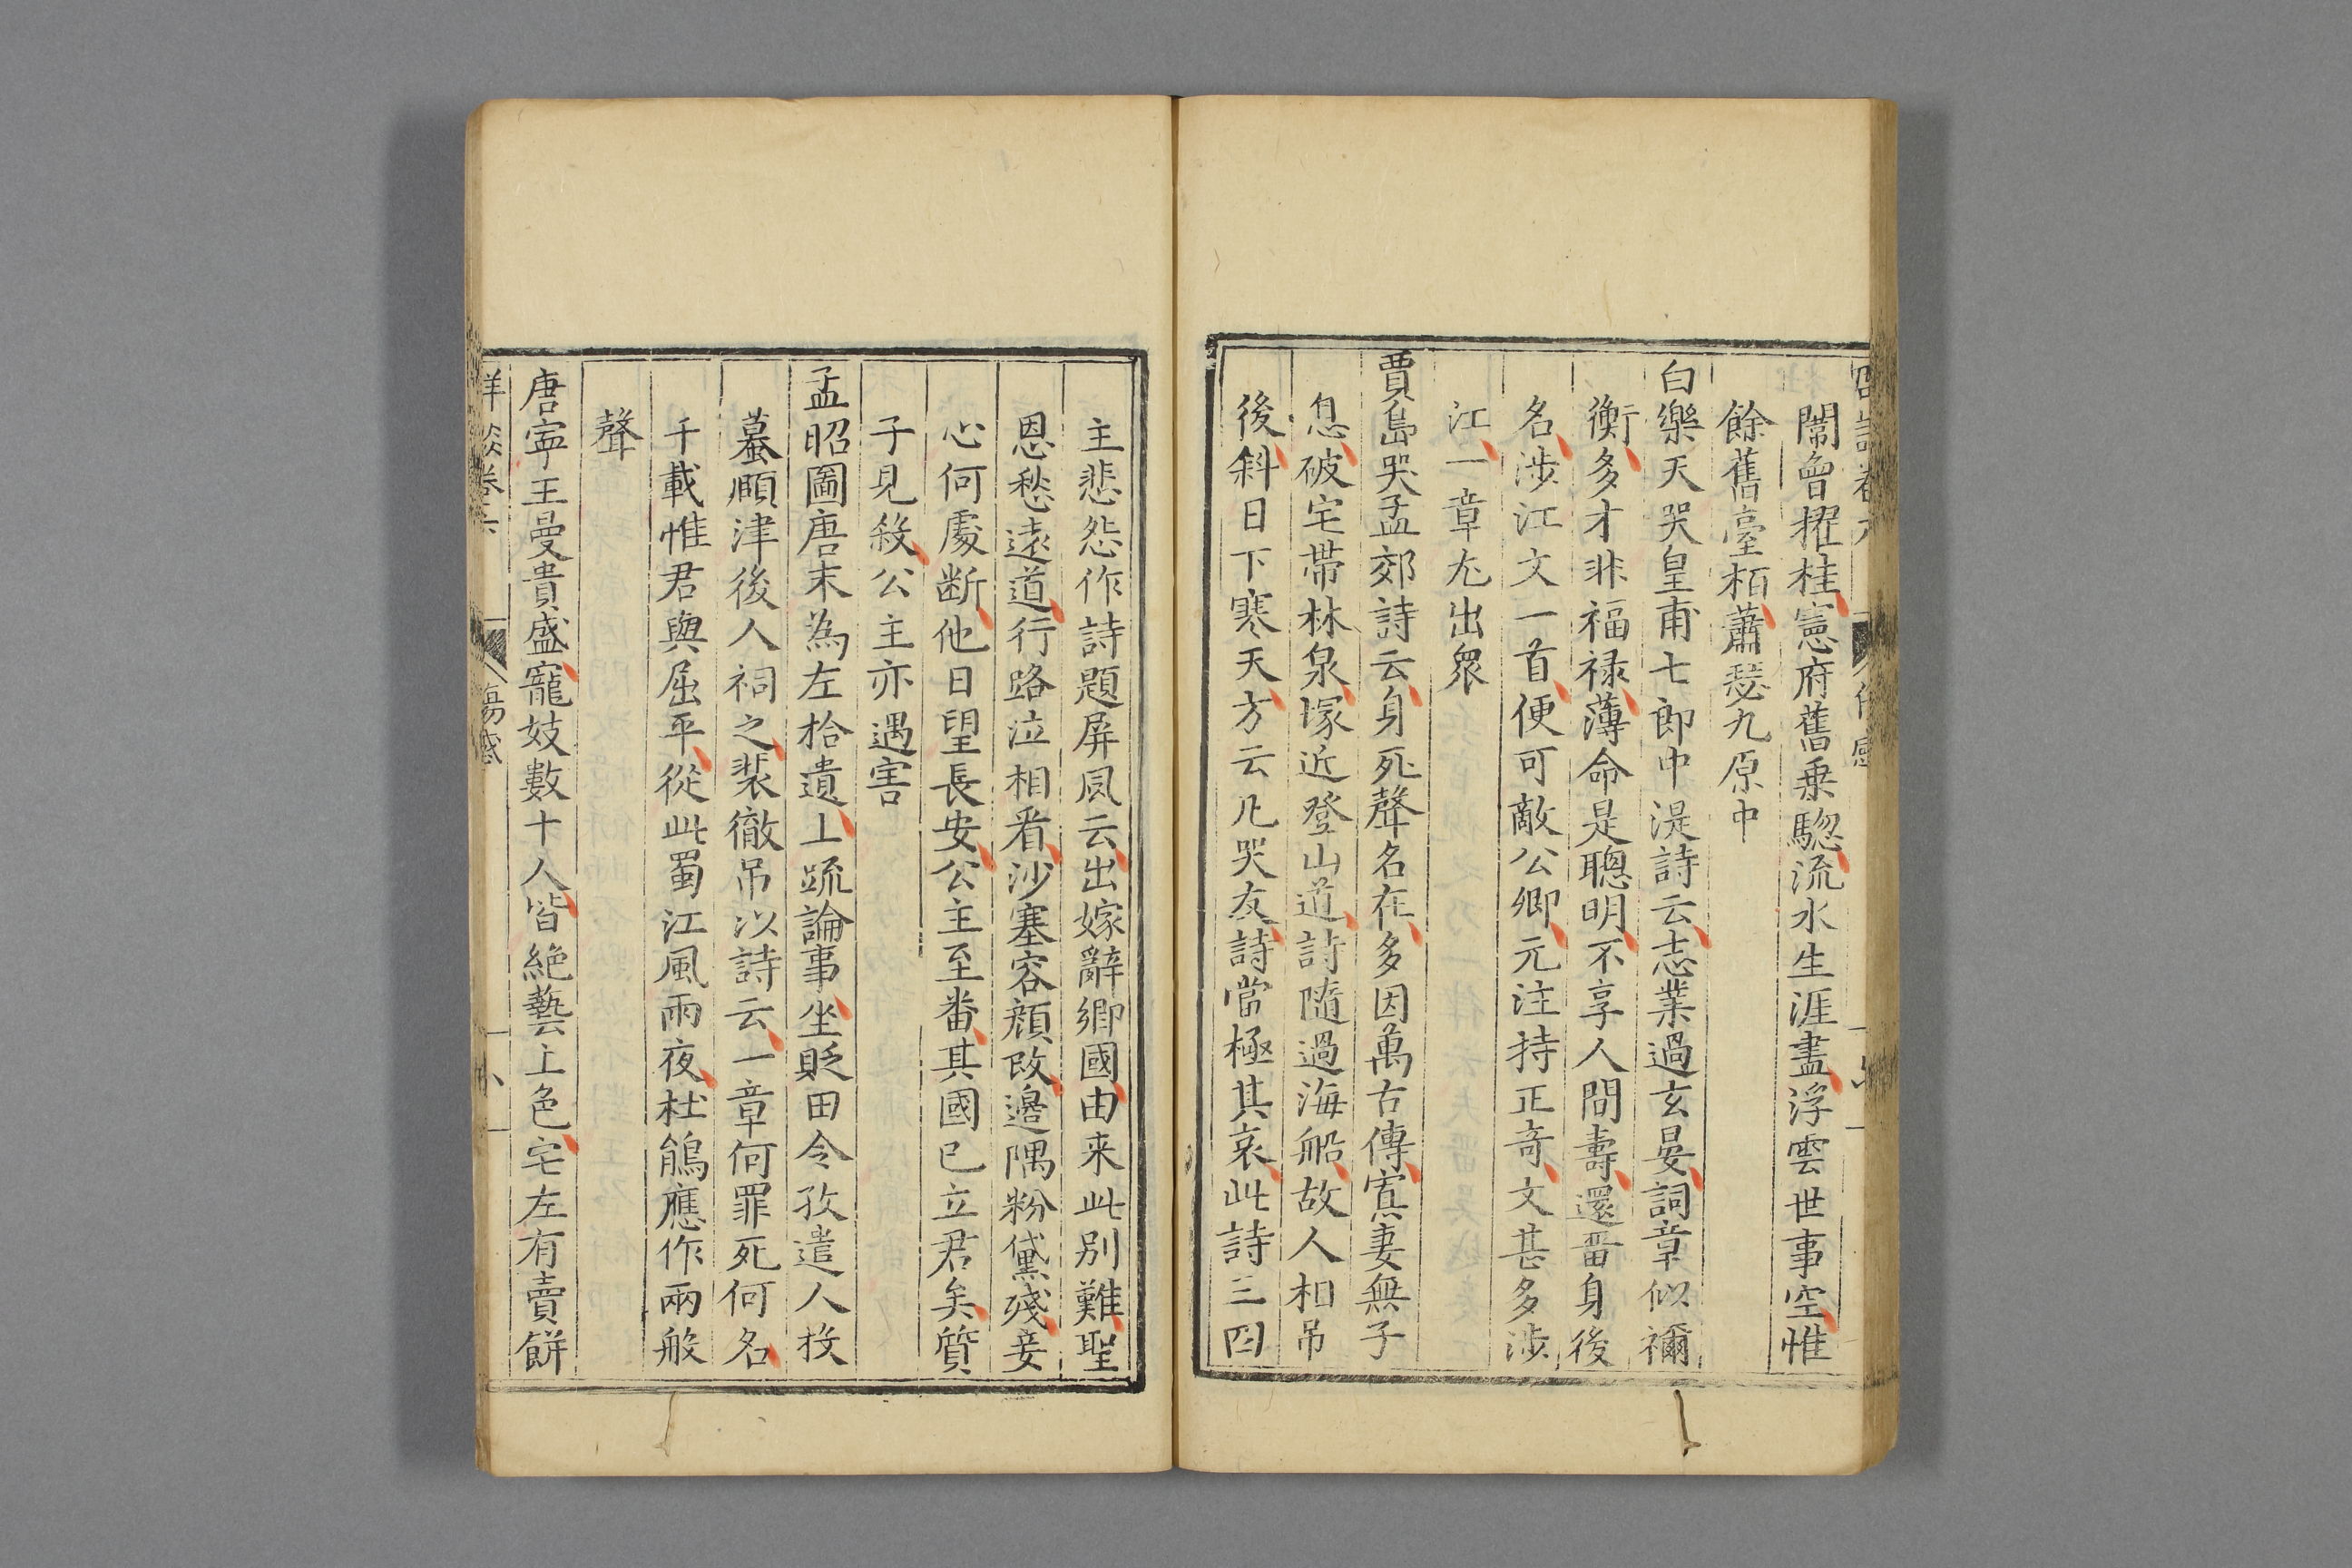 閙曾擢桂憲府舊乗騘流水生涯盡浮雲世事空惟
餘舊臺栢蕭瑟九原中
白樂天哭皇甫七郎中湜詩云志業過玄晏詞章似禰
衡多才非福禄薄命是聰明不享人間壽還畱身後
名涉江文一首便可敵公卿元注持正竒文甚多涉
江一章尤出衆
賈島哭孟郊詩云身死聲名在多因萬古傳寘妻無子
息破宅帶林泉塚近登山道詩隨過海船故人相吊
後斜日下寒天方云凡哭友詩當極其哀此詩三四
主悲怨作詩題屏風云出嫁辭鄉國由来此別難聖
恩愁遠道行路泣相看沙塞容顔改邊隅粉黛殘妾
心何處断他日望長安公主至番其國已立君矣質
子見殺公主亦遇害
孟昭圖唐末為左拾遺上疏論事坐貶田令孜遣人投
蟇頤津後人祠之裴徹吊以詩云一章何罪死何名
千載惟君與屈平從此蜀江風雨夜杜鵑應作兩般
聲
唐寧王曼貴盛寵妓數十人皆絶藝上色宅左有賣餅
詳談卷六 傷感